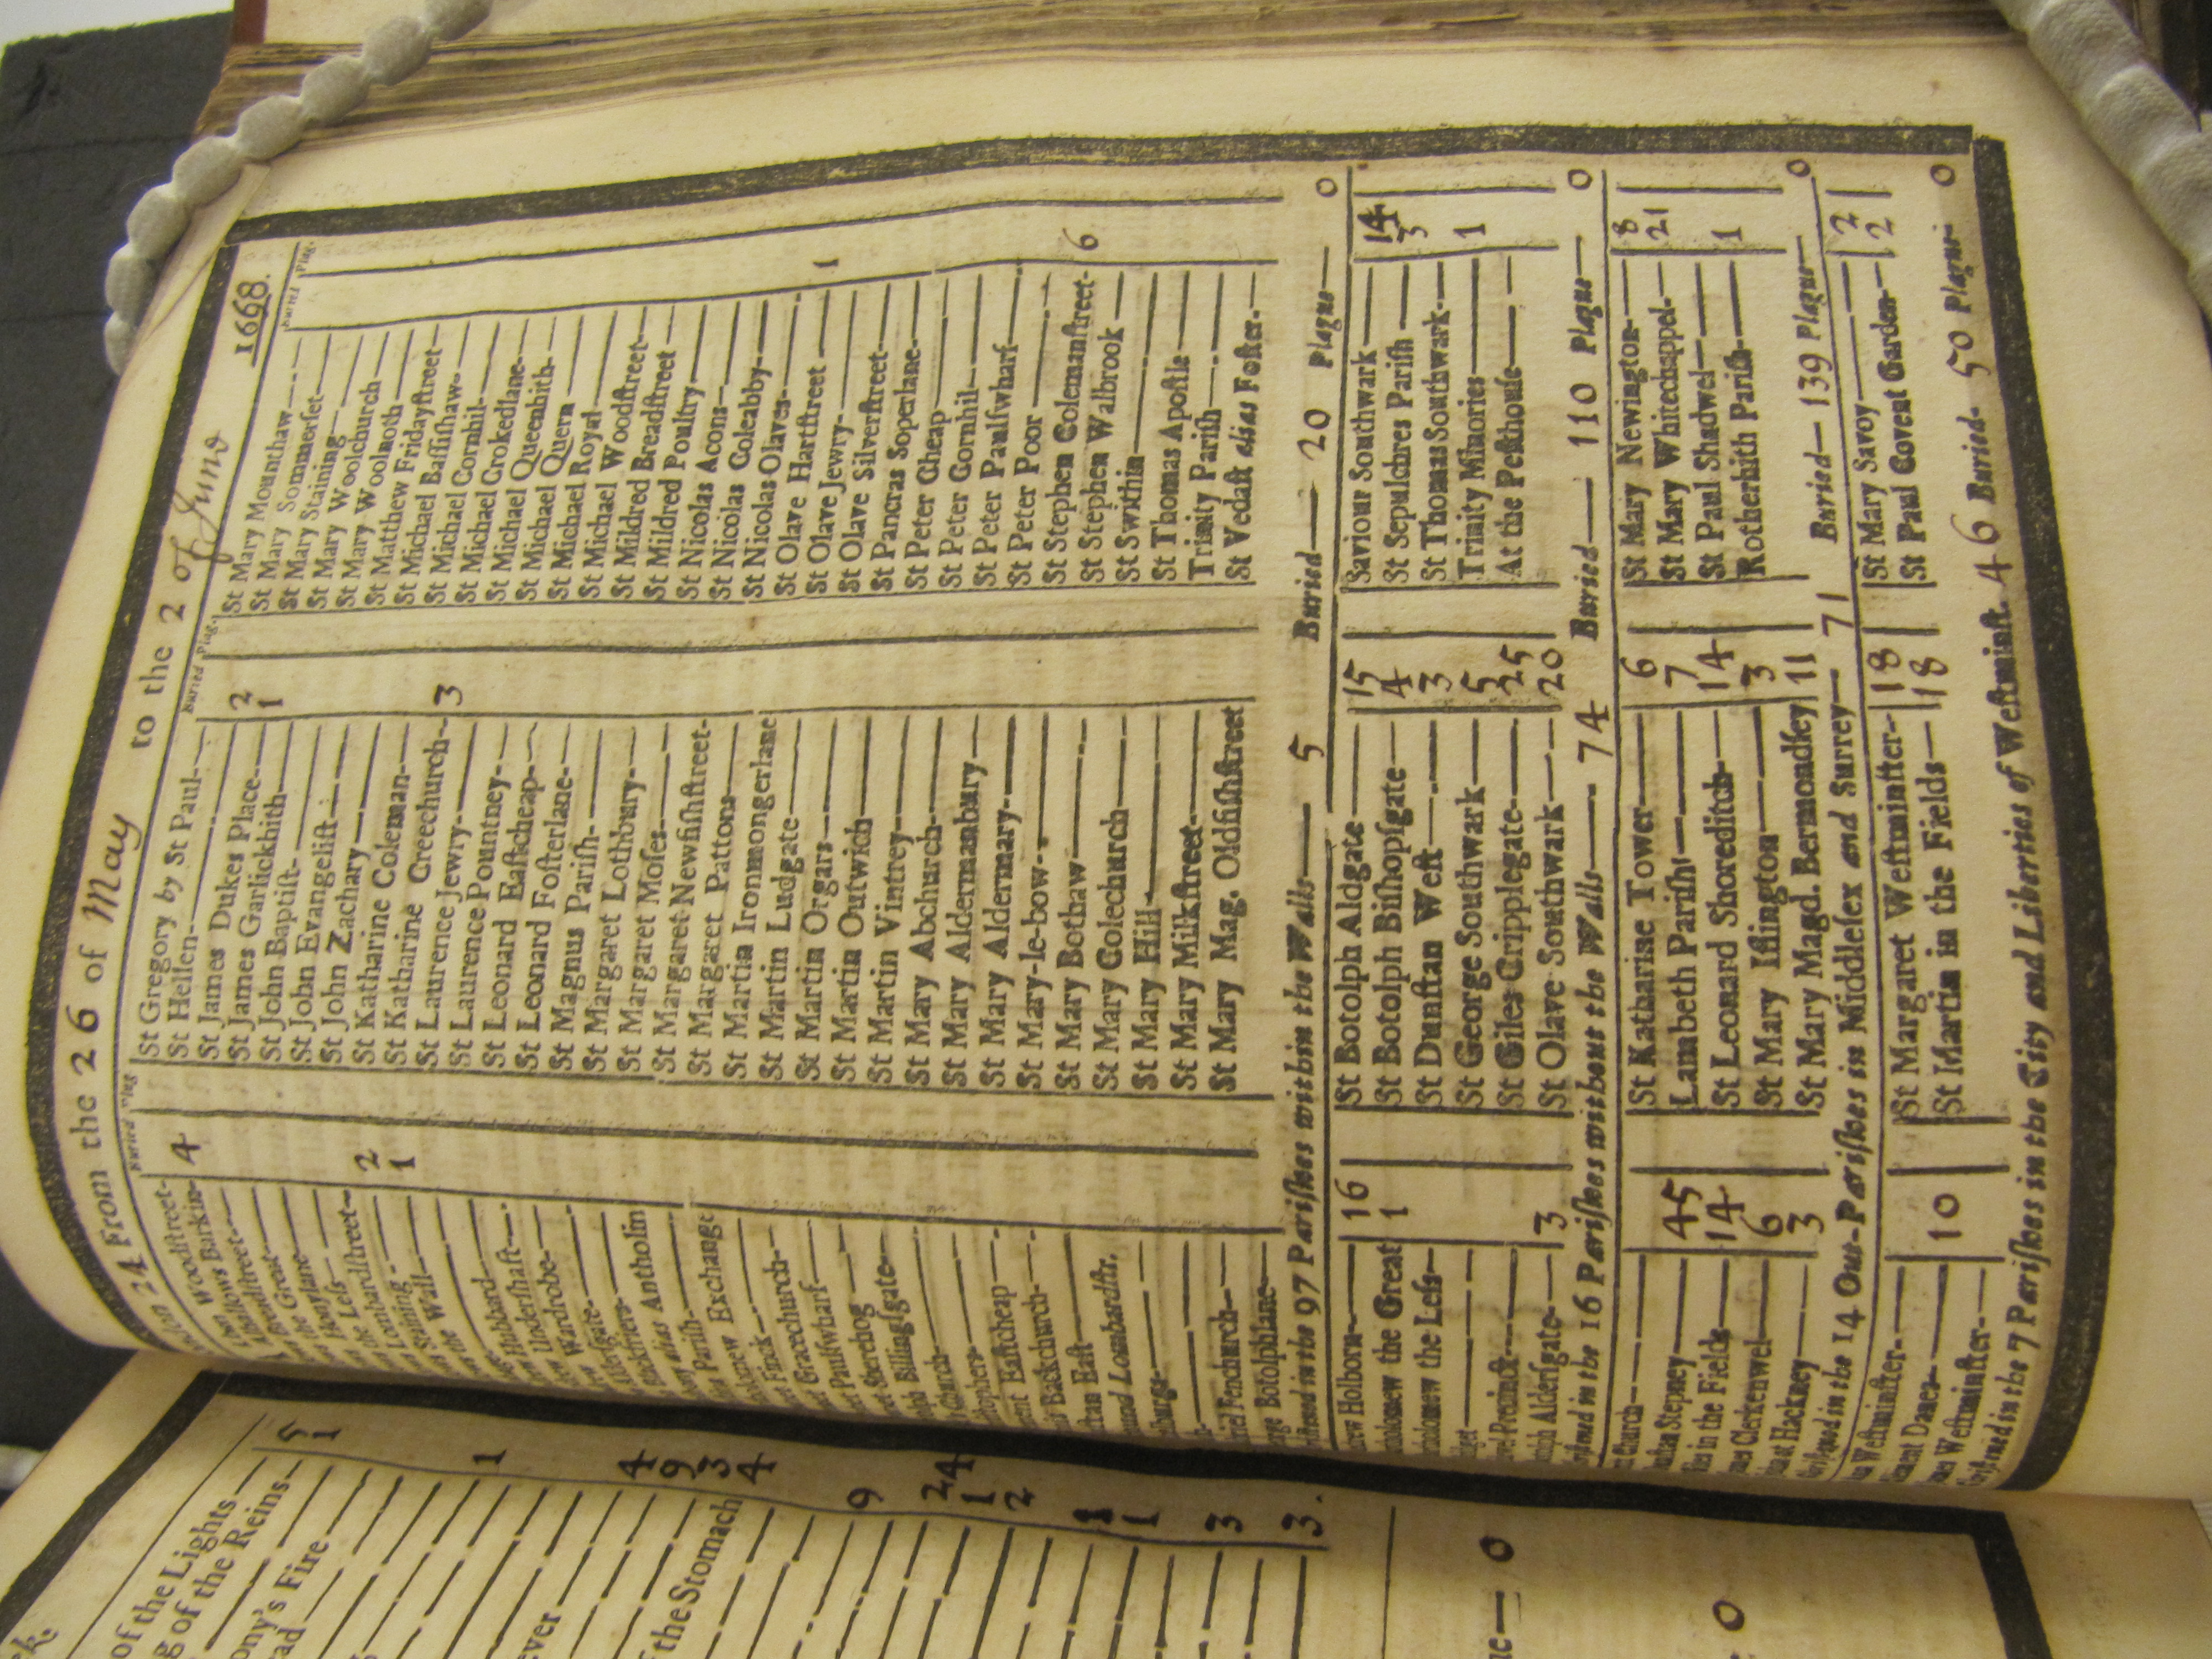 24 From the 26 of May to the 2 of June 1668.
Buried Plag
Woodstreet-
Barkin- 4
Breadstreet
Great
Honylane
Less
Lombardstreet-
Staining- 2
Wall 1
Hubbard
Undershaft
Wardrobe
Antholin
Parish
Exchange
Finck
Gracechurch
Paulswharf
Sherehog
Billingsgate
Church
Eastcheap
Backchurch
East
Lombardstr.
Fenchurch
Botolphlane
Buried Plag.
St Gregory by St Paul
St Hellen
St James Dukes Place 2
St James Garlickhith 1
St John Baptist
St John Evangelist
St John Zachary
St Katharine Coleman
St Katharine Creechurch 3
St Laurence Jewry
St Laurence Pountney
St Leonard Eastcheap
St Leonard Fosterlane
St Magnus Parish
St Margaret Lothbury
St Margaret Moses
St Margaret Newfishstreet
St Margaret Pattons
St Martin Ironmongerlane
St Martin Ludgate
St Martin Orgars
St Martin Outwich
St Martin Vintrey
St Mary Abchurch
St Mary Aldermanbury
St Mary Aldermary
St Mary-le-bow
St Mary Bothaw
St Mary Colechurch
St Mary Hill
St Mary Milkstreet
St Mary Mag. Oldfishstreet
Buried Plag.
St Mary Mounthaw
St Mary Sommerset
St Mary Staining
St Mary Woolchurch
St Mary Woolnoth
St Matthew Fridaystreet
St Michael Bassishaw
St Michael Cornhil
St Michael Crokedlane
St Michael Queenhith
St Michael Quern
St Michael Royal
St Michael Woodstreet
St Mildred Breadstreet
St Mildred Poultry
St Nicolas Acons
St Nicolas Coleabby
St Nicolas Olaves
St Olave Hartstreet 1
St Olave Jewry
St Olave Silverstreet
St Pancras Soperlane
St Peter Cheap
St Peter Cornhil
St Peter Paulswharf
St Peter Poor
St Stephen Colemanstreet 6
St Stephen Walbrook
St Swithin
St Thomas Apostle
Trinity Parish
St Vedast alias Foster
in the 97 Parishes within the Walls 5 Buried 20 Plague 0
Holborn 16
the Great 1
the Less
Precinct
Aldersgate 3
St Botolph Aldgate 15
St Botolph Bishopsgate 4
St Dunstan West 3
St George Southwark 5
St Giles Cripplegate 25
St Olave Southwark 20
Saviour Southwark 14
St Sepulchres Parish 3
St Thomas Southwark
Trinity Minories 1
At the Pesthouse
in the 16 Parishes without the Walls 74 Buried 110 Plague 0
Church
Stepney 45
in the Fields 14
Clerkenwel 6
at Hackney 3
St Katharine Tower 6
Lambeth Parish 7
St Leonard Shoreditch 14
St Mary Islington 3
St Mary Magd. Bermondsey 11
St Mary Newington 8
St Mary Whitechappel 21
St Paul Shadwel 1
Rotherhith Parish
in the 14 Out-Parishes in Middlesex and Surrey 71 Buried 139 Plague 0
Westminster
Danes 10
Westminster
St Margaret Westminster 18
St Martin in the Fields 18
St Mary Savoy 2
St Paul Covent Garden 2
in the 7 Parishes in the City and Liberties of Westminst. 46 Buried 50 Plague 0
of the Lights 5
of the Reins 1
ony's Fire
1
ever 4
9
3
of the Stomach 4
9
24
1
2
1
1
3
3
0
0